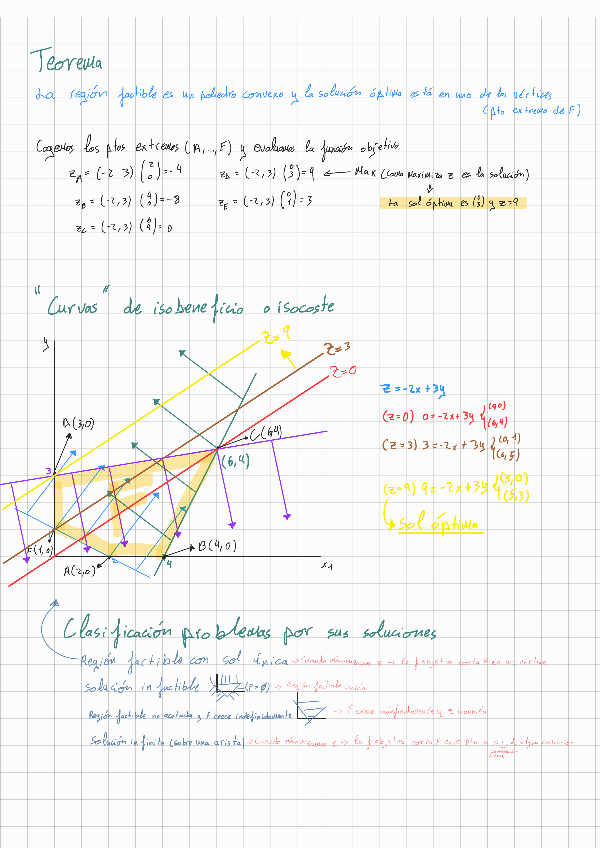 Teorema
La región factible es un poliedro convexo y la solución óptima está en uno de los vértices
(pto extremo de F)
Cogemos los ptos extremos (A,...,F) y evaluamos la función objetivo
z_A = (-2 3) (2 0) = -4
z_D = (-2,3) (0 3) = 9 ← Max (como maximiza z es la solución)
z_B = (-2,3) (4 0) = -8
z_E = (-2,3) (0 1) = 3
La sol óptima es (0 3) y z=9
z_C = (-2,3) (6 4) = 0
"Curvas" de isobeneficio o isocoste
y
z=9
z=3
z=0
z = -2x+3y
D(3,0)
C(6,4)
(z=0) 0=-2x+3y (0,0) (6,4)
(z=3) 3=-2x+3y (0,1) (6,5)
3
(6,4)
(z=9) 9=-2x+3y (3,0) (5,3)
sol óptima
E(1,0)
B(4,0)
A(2,0)
2
4
x1
Clasificación problemas por sus soluciones
Región factible con sol única → Cuando la f objetivo
solución infactible (F=∅) → Región factible vacía
Región factible no acotada y F crece indefinidamente → F crece indefinidamente y
Solución infinita (sobre una arista) → Cuando